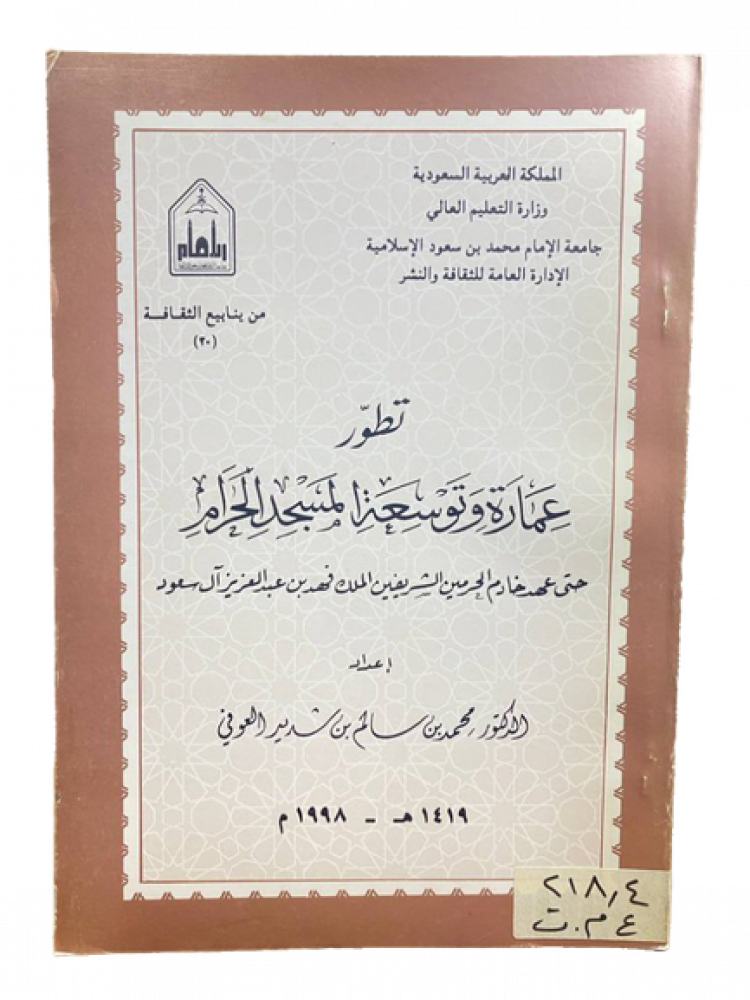 المملكة العربية السعودية
وزارة التعليم العالي
جامعة الإمام محمد بن سعود الإسلامية
الإدارة العامة للثقافة والنشر
من ينابيع الثقافة
(٢٠)
تطوّر
عِمَارَة وَتَوْسِعَة المَسْجِدِ الحَرَامِ
حتى عهد خادم الحرمين الشريفين الملك فهد بن عبد العزيز آل سعود
إعداد
الدكتور محمد بن سالم بن شديد العوفي
١٤١٩ هـ - ١٩٩٨ م
٢١٨,٤
ع م. ت